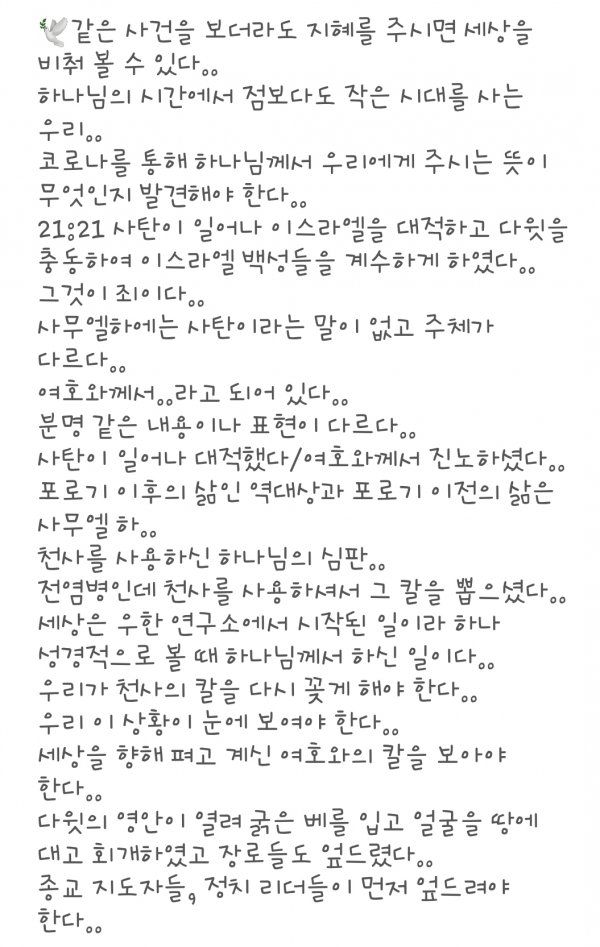 🕊같은 사건을 보더라도 지혜를 주시면 세상을
비춰 볼 수 있다。。
하나님의 시간에서 점보다도 작은 시대를 사는
우리。。
코로나를 통해 하나님께서 우리에게 주시는 뜻이
무엇인지 발견해야 한다。。
21:21 사탄이 일어나 이스라엘을 대적하고 다윗을
충동하여 이스라엘 백성들을 계수하게 하였다。。
그것이 죄이다。。
사무엘하에는 사탄이라는 말이 없고 주체가
다르다。。
여호와께서。。라고 되어 있다。。
분명 같은 내용이나 표현이 다르다。。
사탄이 일어나 대적했다/여호와께서 진노하셨다。。
포로기 이후의 삶인 역대상과 포로기 이전의 삶은
사무엘 하。。
천사를 사용하신 하나님의 심판。。
전염병인데 천사를 사용하셔서 그 칼을 뽑으셨다。。
세상은 우한 연구소에서 시작된 일이라 하나
성경적으로 볼 때 하나님께서 하신 일이다。。
우리가 천사의 칼을 다시 꽂게 해야 한다。。
우리 이 상황이 눈에 보여야 한다。。
세상을 향해 펴고 계신 여호와의 칼을 보아야
한다。。
다윗의 영안이 열려 굵은 베를 입고 얼굴을 땅에
대고 회개하였고 장로들도 엎드렸다。。
종교 지도자들, 정치 리더들이 먼저 엎드려야
한다。。